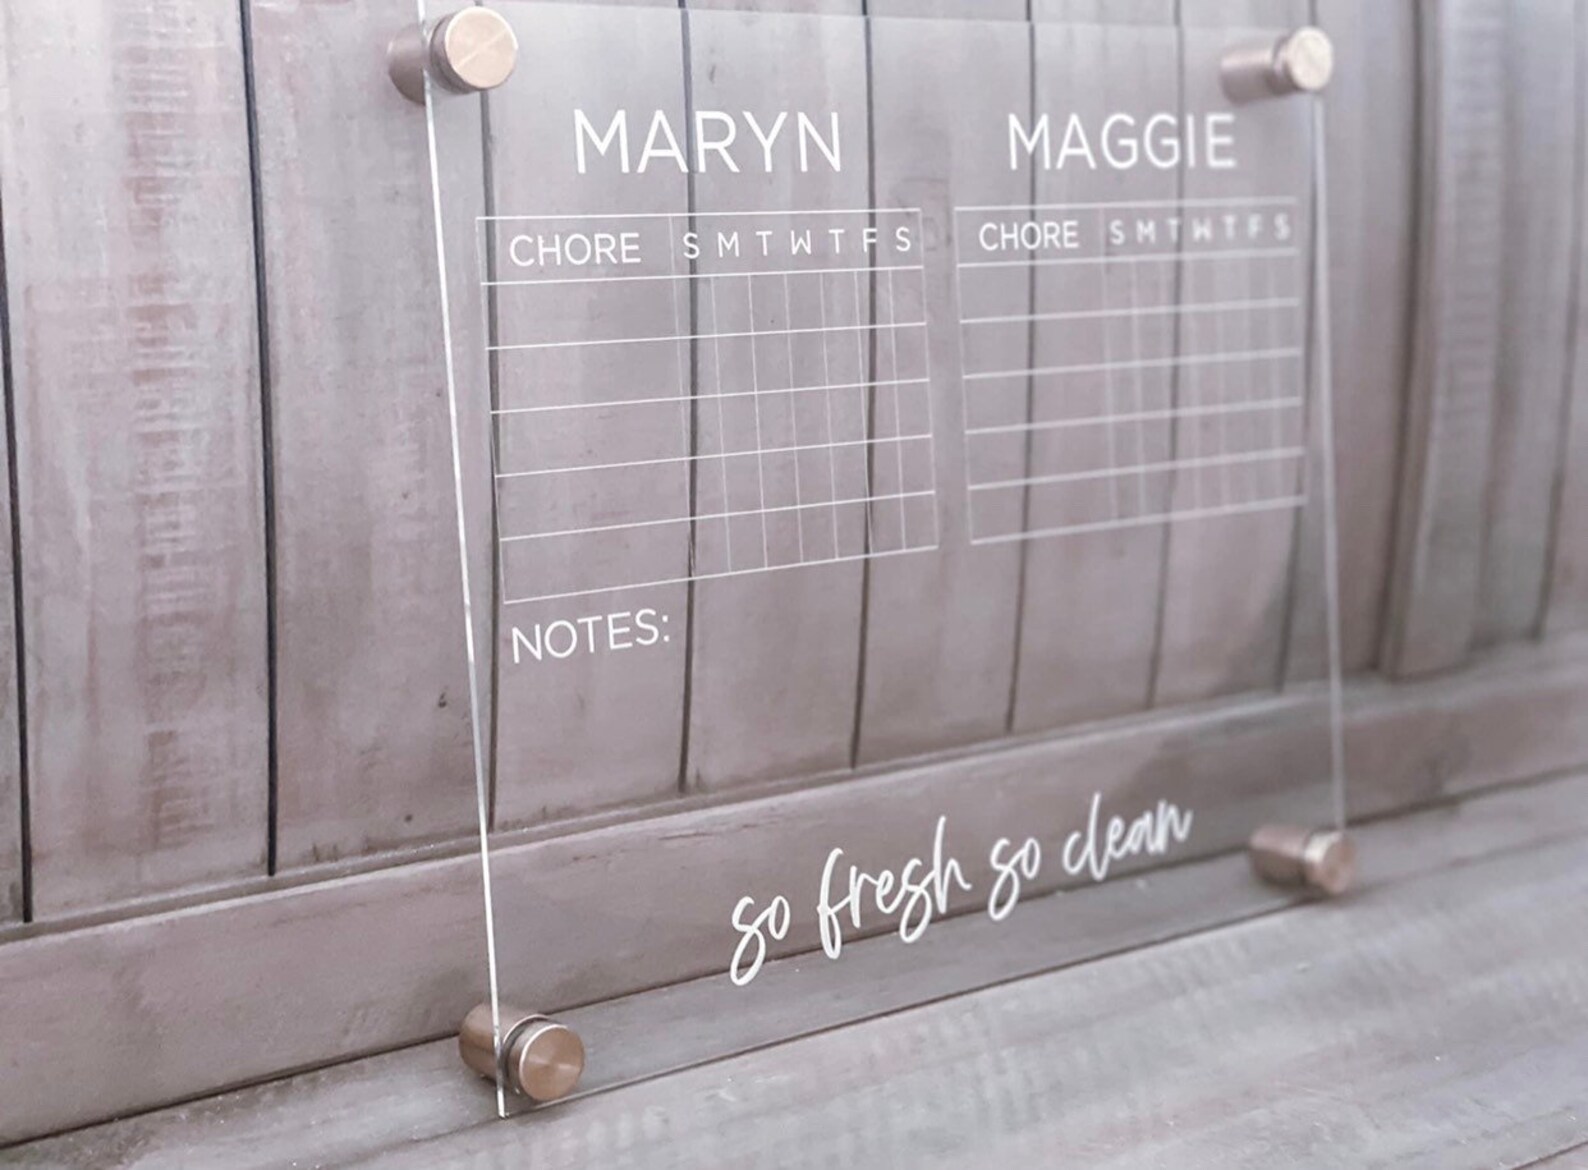 MARYN
CHORE S M T W T F S
NOTES:
MAGGIE
CHORE S M T W T F S
so fresh so clean